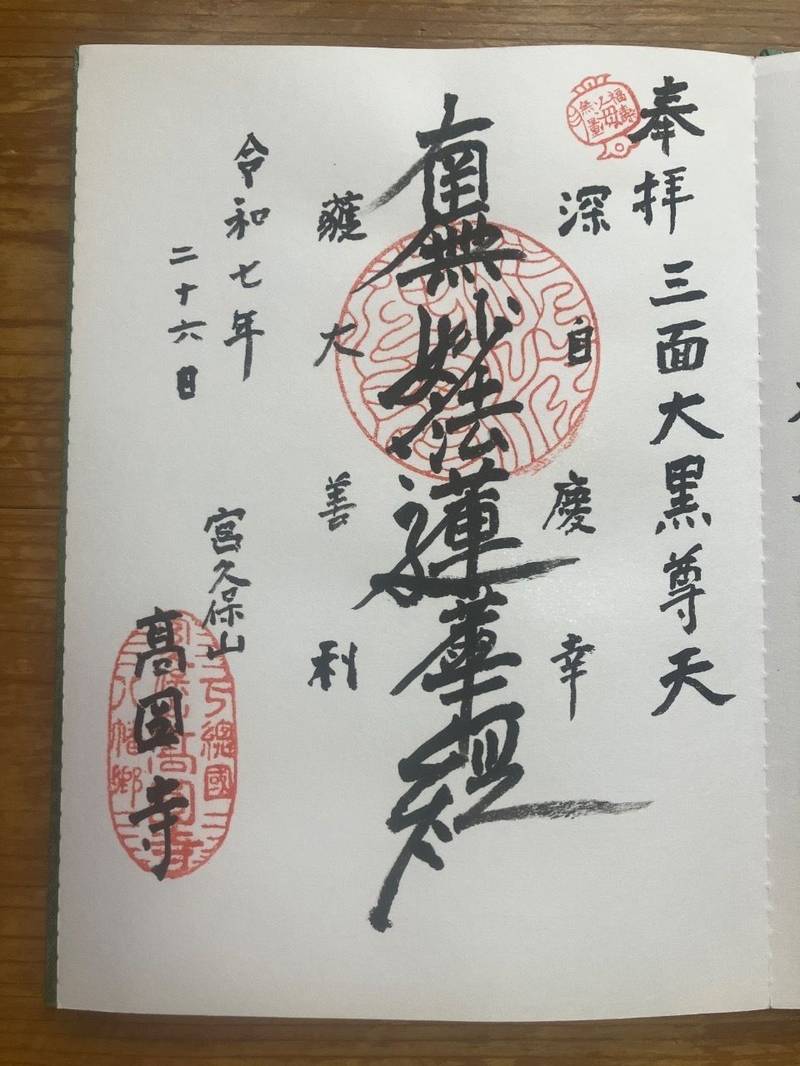 奉拝 三面大黒尊天
深自慶幸
南無妙法蓮華経
獲大善利
令和七年
二十六日
宮久保山
高圓寺
福壽
海
無量
下總國
八幡郷